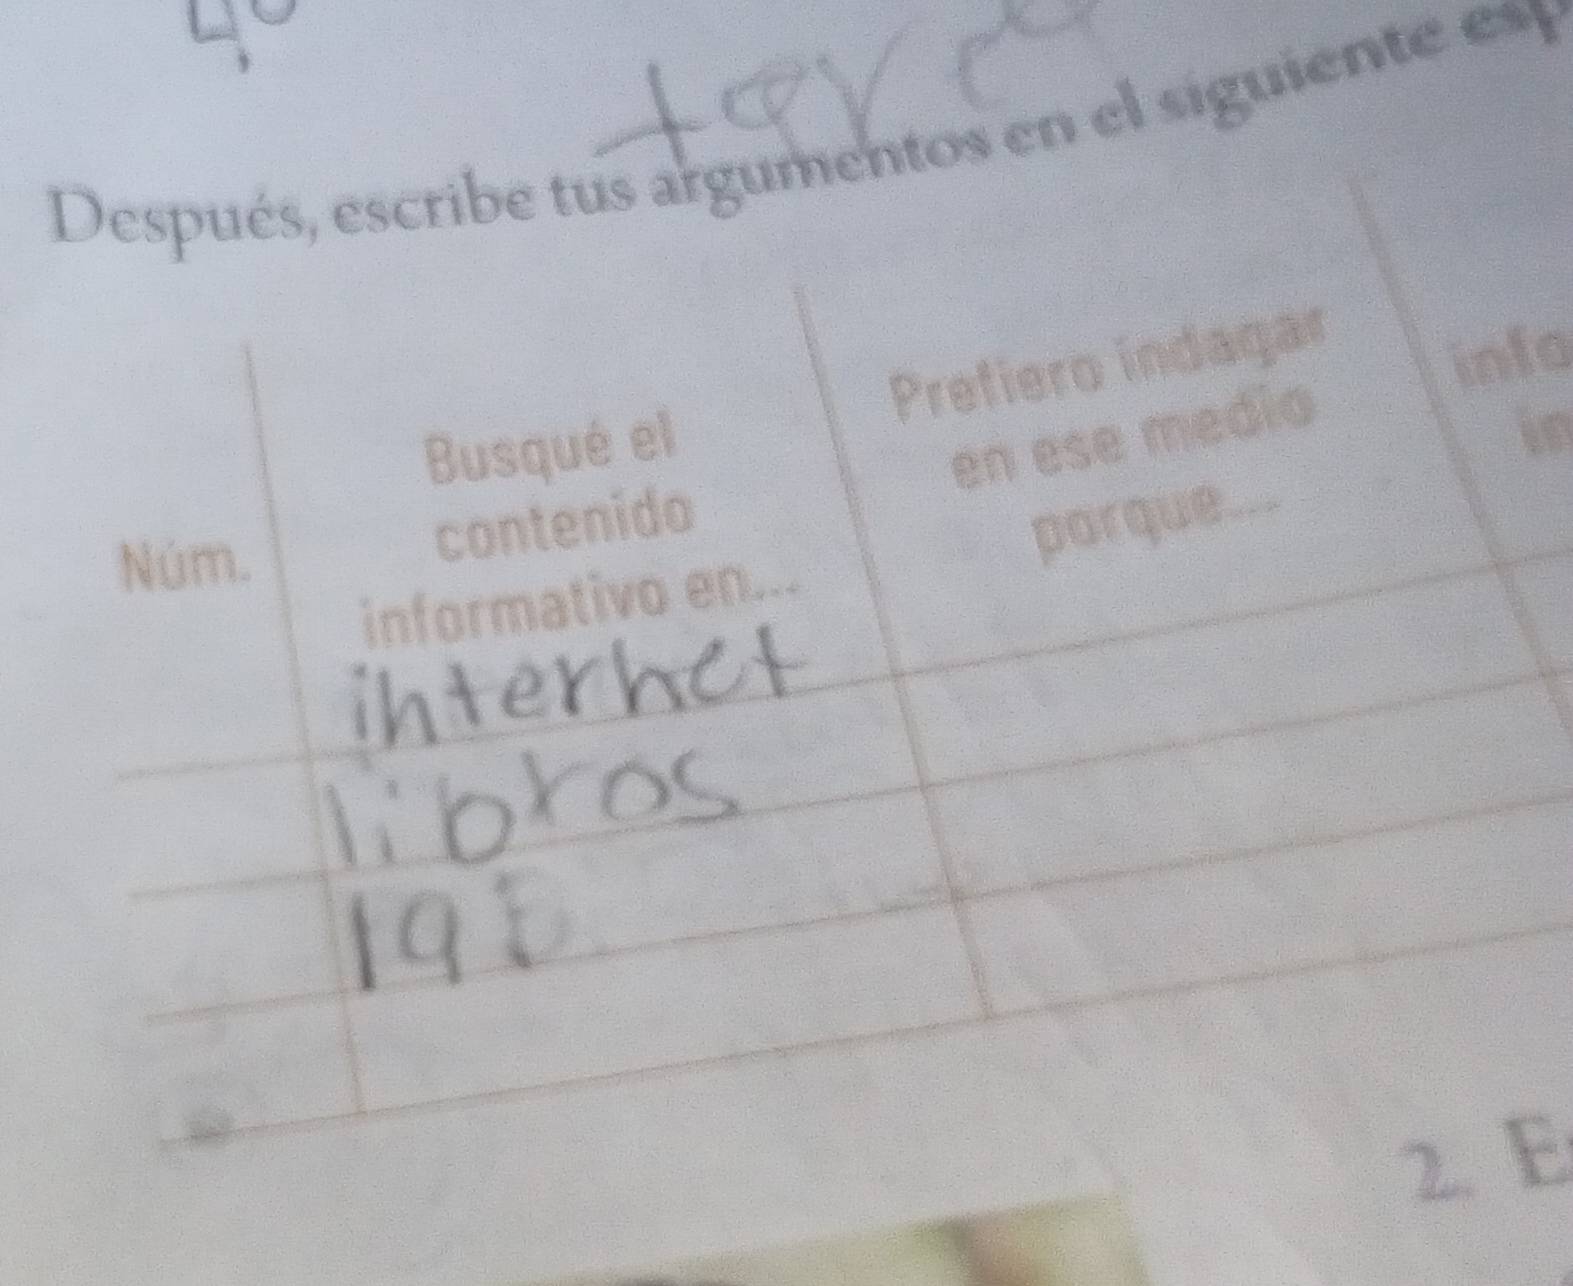 Después, escribe tus argumentos en el siguiente esp
Núm.
Busqué el
contenido
informativo en...
Prefiero indagar
en ese medio
porque...
info
in
internet
libros
2. E